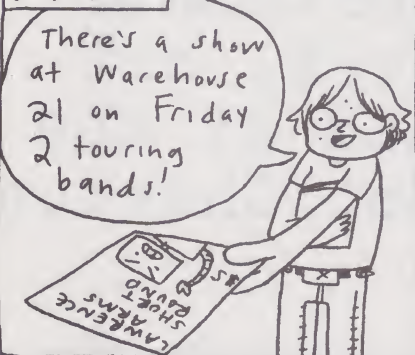 There's a show
at Warehouse
21 on Friday
2 touring
bands!
$5
LAWRENCE
ARMS
SHORT
ROUND